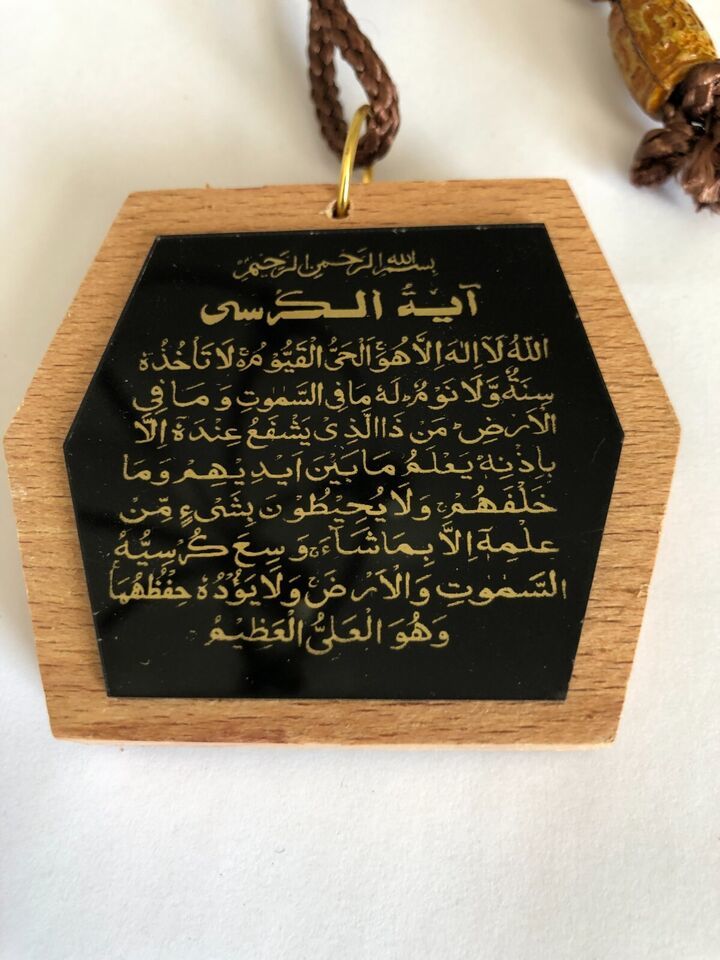 بسم الله الرحمن الرحيم
آية الكرسى
اَللّٰهُ لَآ اِلٰهَ اِلَّا هُوَۚ اَلْحَىُّ الْقَيُّوْمُ ەۚ لَا تَاْخُذُهٗ
سِنَةٌ وَّلَا نَوْمٌ ؕ لَهٗ مَا فِى السَّمٰوٰتِ وَمَا فِى
الْاَرْضِ ؕ مَنْ ذَا الَّذِىْ يَشْفَعُ عِنْدَهٗٓ اِلَّا
بِاِذْنِهٖ ؕ يَعْلَمُ مَا بَيْنَ اَيْدِيْهِمْ وَمَا
خَلْفَهُمْ ۚ وَلَا يُحِيْطُوْنَ بِشَىْءٍ مِّنْ
عِلْمِهٖٓ اِلَّا بِمَا شَآءَ ۚ وَسِعَ كُرْسِيُّهُ
السَّمٰوٰتِ وَالْاَرْضَ ۚ وَلَا يَـُٔوْدُهٗ حِفْظُهُمَا ۚ
وَهُوَ الْعَلِىُّ الْعَظِيْمُ